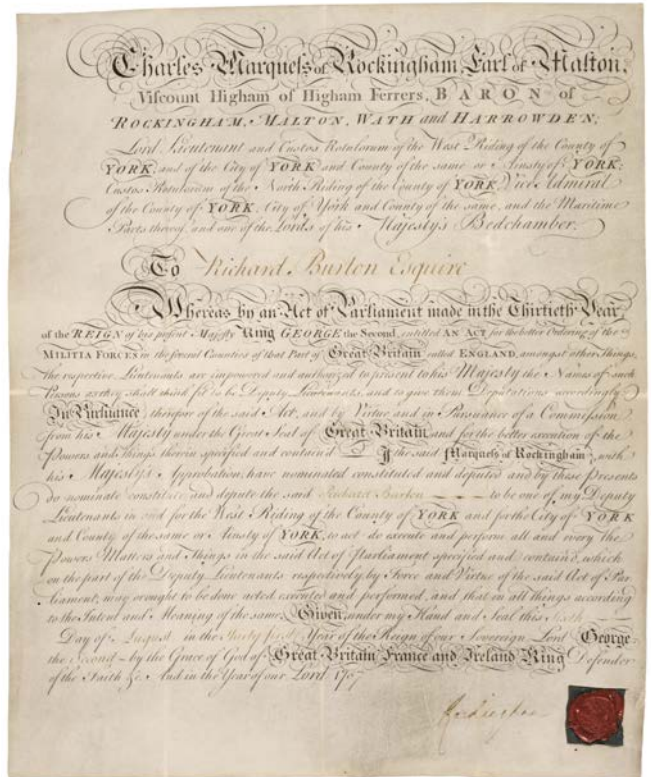 Charles Marquess of Rockingham, Earl of Malton,
Viscount Higham of Higham Ferrers, BARON of
ROCKINGHAM, MALTON, WATH and HARROWDEN;
Lord Lieutenant and Custos Rotulorum of the West Riding of the County of
YORK, and of the City of YORK and County of the same or Ainsty of YORK;
Custos Rotulorum of the North Riding of the County of YORK, Vice Admiral
of the County of YORK, City of York and County of the same, and the Maritime
Parts thereof, and one of the Lords of his Majesty's Bedchamber;
To Richard Burton Esquire
Whereas by an Act of Parliament made in the Thirtieth Year
of the REIGN of his present Majesty King GEORGE the Second, entitled AN ACT for the better Ordering of the
MILITIA FORCES in the several Counties of that Part of Great Britain called ENGLAND, amongst other Things,
the respective Lieutenants are impowered and authorized to present to his Majesty the Names of such
Persons as they shall think fit to be Deputy Lieutenants, and to give them Deputations accordingly
In Pursuance, therefore of the said Act, and by Virtue and in Pursuance of a Commission
from his Majesty under the Great Seal of Great Britain and for the better execution of the
Powers and things therein specified and contained I the said Marquess of Rockingham, with
his Majesty's Approbation, have nominated constituted and deputed and by these Presents
do nominate constitute and depute the said Richard Burton to be one of my Deputy
Lieutenants in and for the West Riding of the County of YORK and for the City of YORK
and County of the same or Ainsty of YORK, to act do execute and perform all and every the
Powers Matters and Things in the said Act of Parliament specified and contain'd, which
on the part of the Deputy Lieutenants respectively, by Force and Virtue of the said Act of Par
liament, may or ought to be done acted executed and performed, and that in all things according
to the Intent and Meaning of the same. Given, under my Hand and Seal this Sixth
Day of August in the Thirty first Year of the Reign of our Sovereign Lord George
the Second by the Grace of God of Great Britain France and Ireland King Defender
of the Faith &c. And in the Year of our Lord 1757